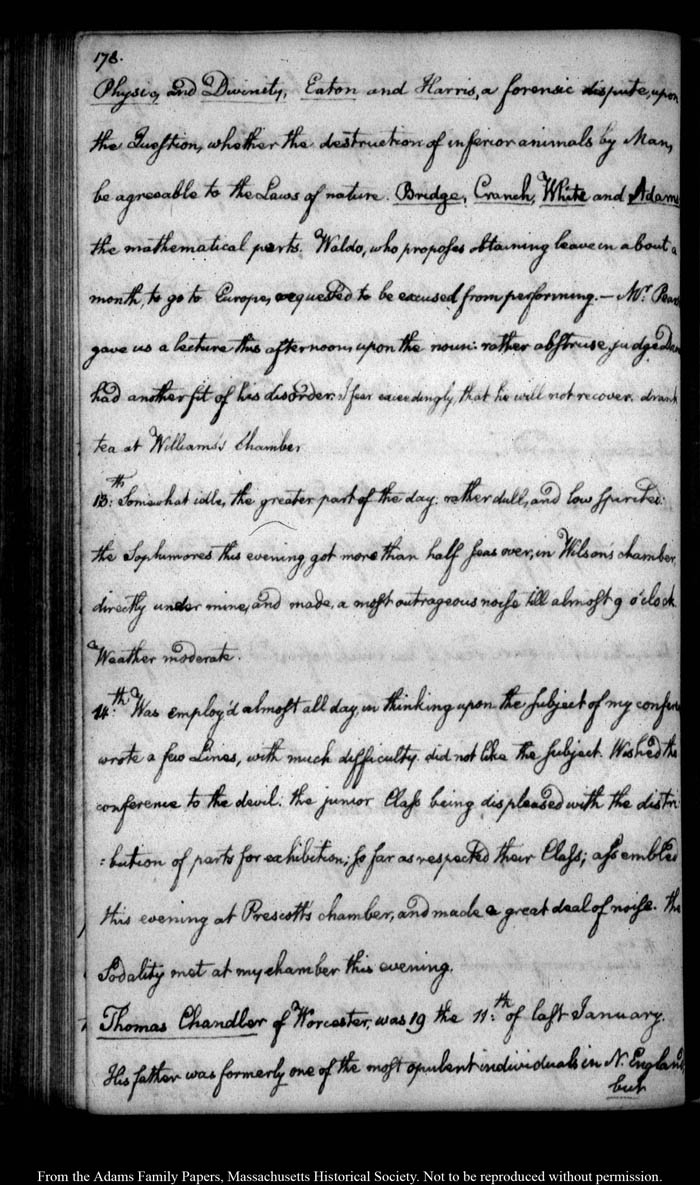 178.
Physic, and Divinity, Eaton and Harris, a forensic dispute, upon
the Question, whether the destruction of inferior animals by Man,
be agreeable to the Laws of nature. Bridge, Cranch, White and Adams
the mathematical parts. Waldo, who proposes obtaining leave in about a
month, to go to Europe, requested to be excused from performing.— Mr. Pear
gave us a lecture this afternoon, upon the noun: rather abstruse, judge Dan
had another fit of his disorder: I fear exceedingly, that he will not recover. drank
tea at Williams's Chamber
13:th Somewhat idle, the greater part of the day: rather dull, and low spirited:
the Sophimores this evening got more than half seas over, in Wilson's chamber,
directly under mine, and made, a most outrageous noise till almost 9 o'clock.
Weather moderate.
14:th Was employ'd almost all day, in thinking upon the subject of my confer
wrote a few Lines, with much difficulty. did not like the subject. Wished the
conference to the devil: the junior Class being displeased with the distri-
:bution of parts for exhibition; so far as respected their Class; assembled
this evening at Prescott's chamber, and made a great deal of noise. the
Sodality met at my chamber this evening.
Thomas Chandler of Worcester, was 19 the 11:th of last January.
His father was formerly one of the most opulent individuals in N. England,
but
From the Adams Family Papers, Massachusetts Historical Society. Not to be reproduced without permission.